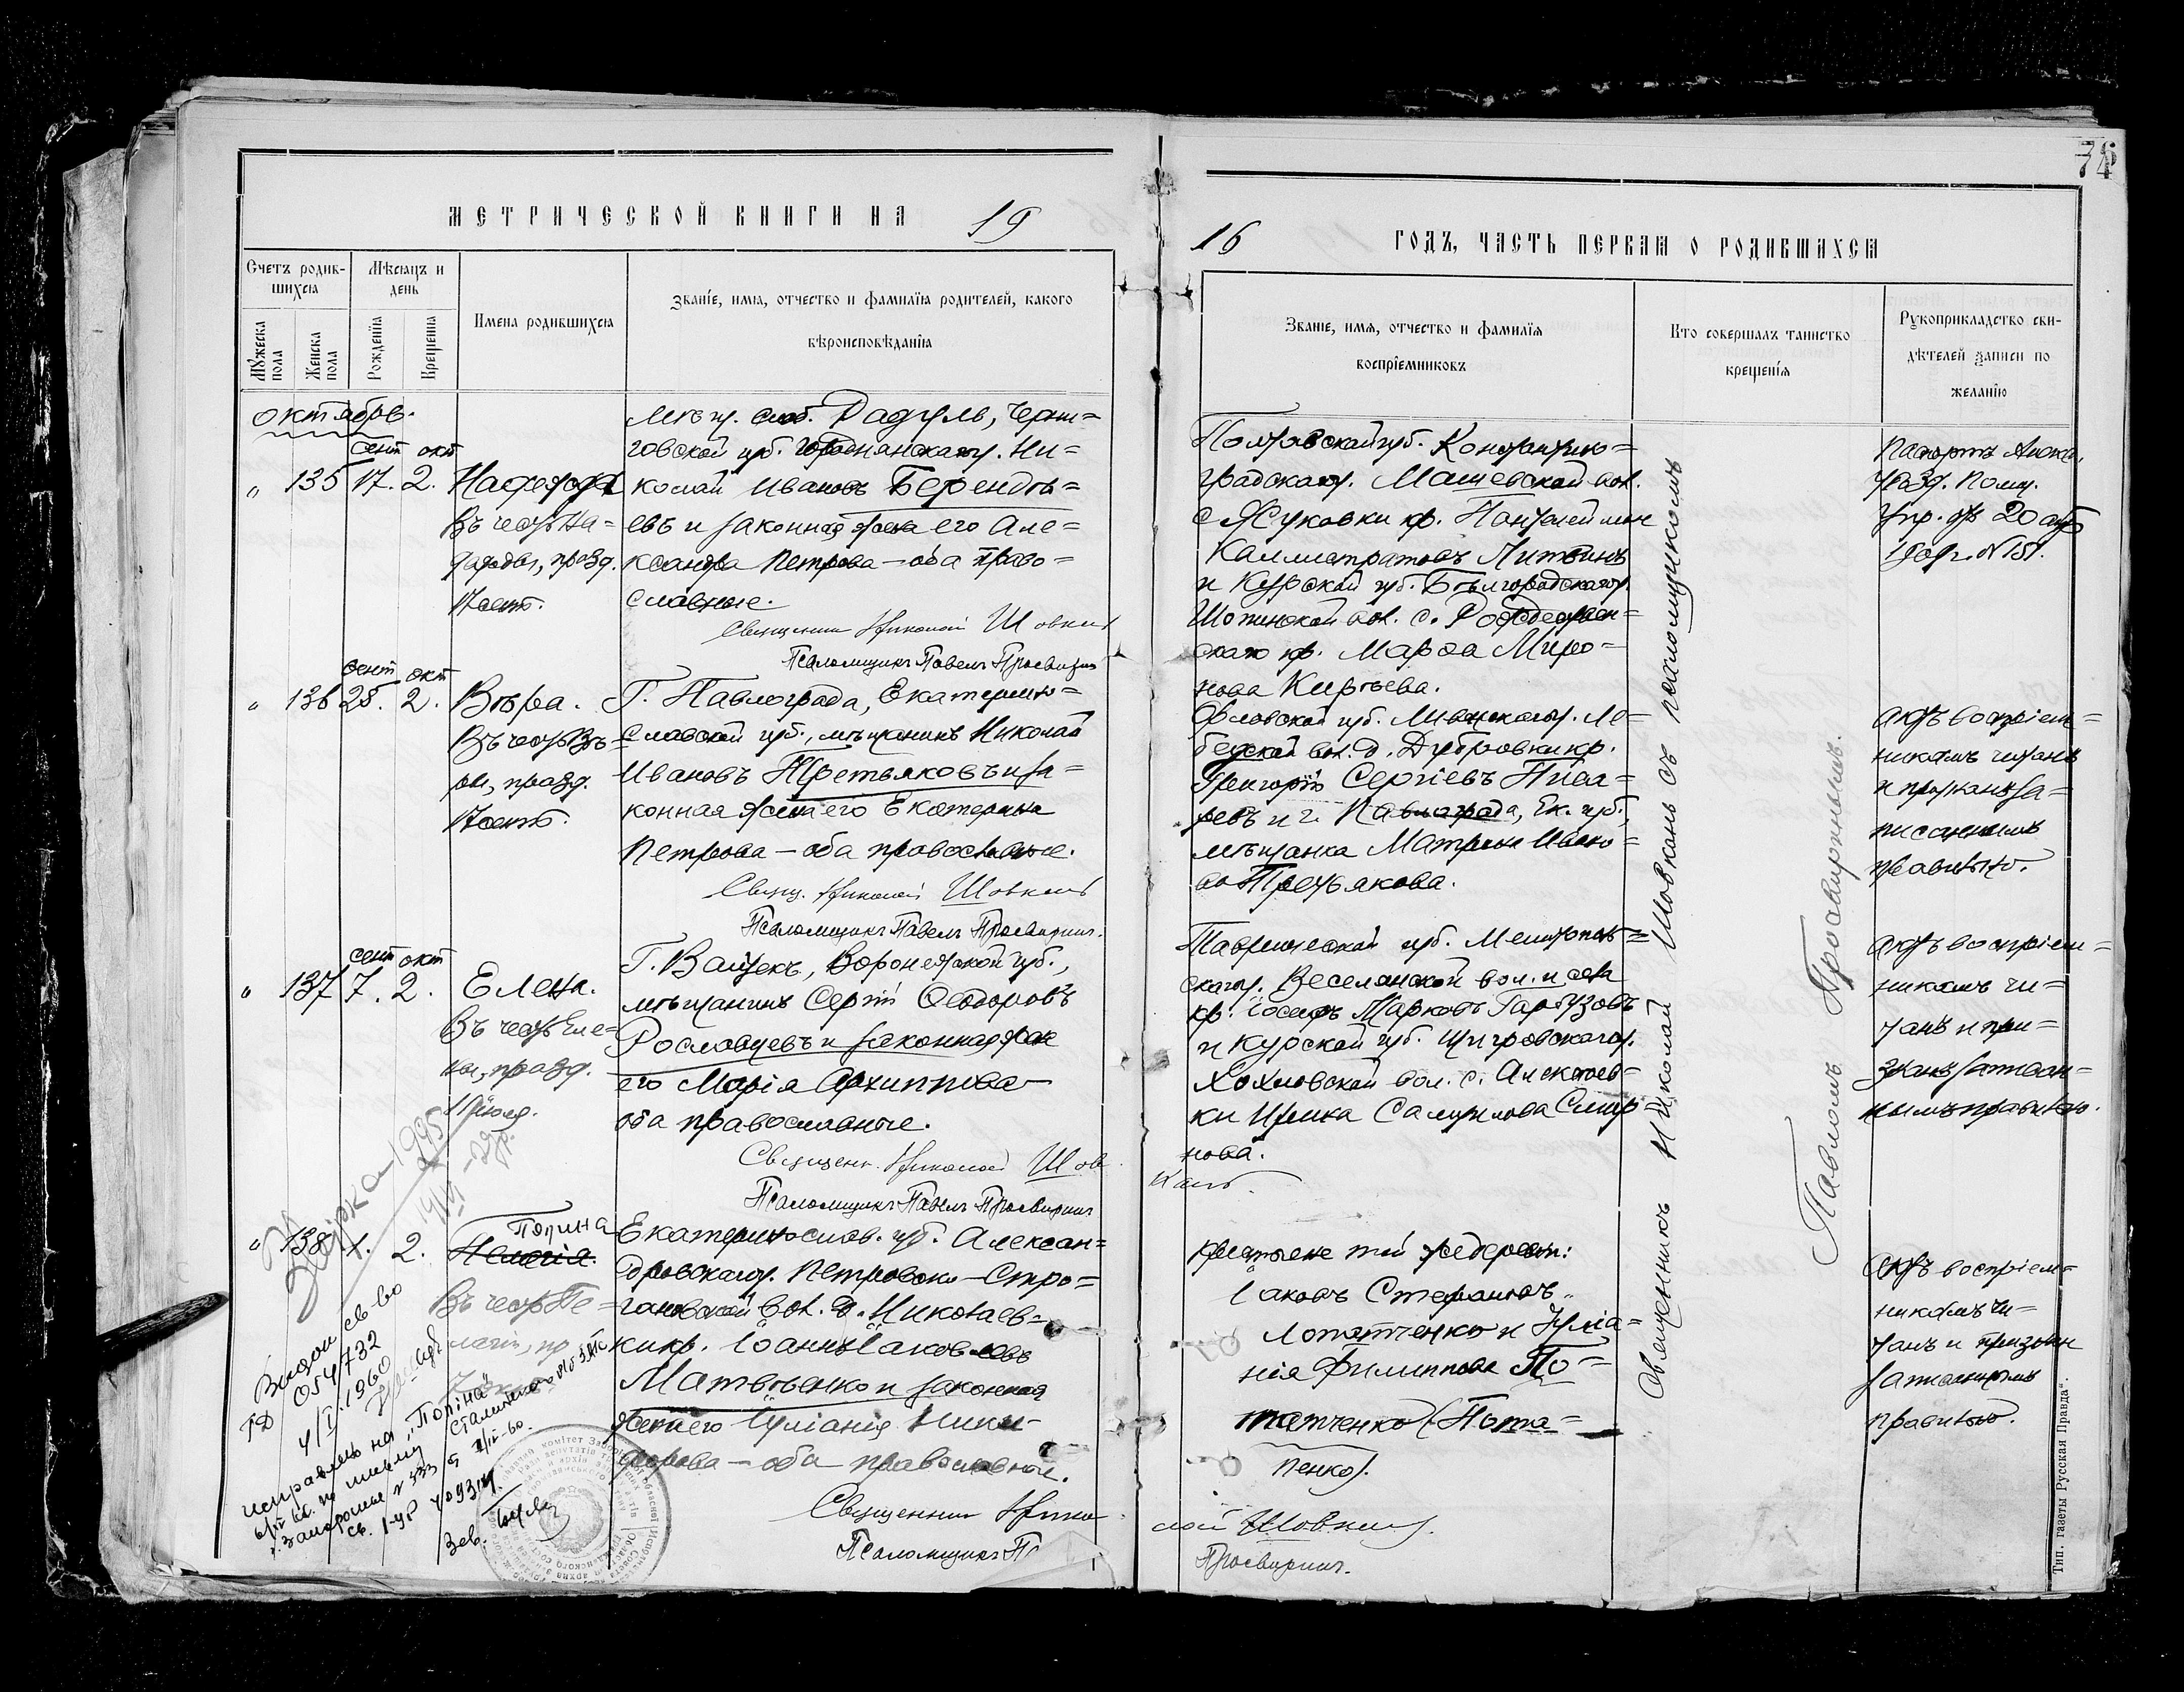 75
МЕТРИЧЕСКОЙ КНИГИ НА 19
16 ГОДЪ, ЧАСТЬ ПЕРВАЯ О РОДИВШИХСЯ
Счетъ родив-
шихся
Мужеска пола
Женска пола
Мѣсяцъ и
день
Рожденїя
Крещенїя
Имена родившихся
Званїе, имя, отчество и фамилїя родителей, какого
вѣроисповѣданїя
Званїе, имя, отчество и фамилїя
воспрїемниковъ
Кто совершалъ таинство
крещенїя
Рукоприкладство сви-
дѣтелей записи по
желанїю
октябрь.
сент окт
" 135 17. 2. Надежда
Въ честь На-
дежды, празд.
17 сент.
мѣщ. слоб. Радуль, Черни-
говской губ. Городнянскаго у. Ни-
колай Ивановъ Берендѣ-
евъ и законная жена его Але-
ксандра Петрова — оба право-
славные.
Священник Николай Шовкань
Псаломщикъ Павелъ Просвирнин
Полтавской губ. Константино-
градскаго у. Машевской вол.
с. Жуковки кр. Пантелеимон
Каллистратовъ Литвинъ
и Курской губ. Бѣлгородскаго у.
Шопинской вол. с. Рождествен-
скаго кр. Марфа Миро-
нова Кирѣева.
Упр. отъ 20 авг.
№ 151.
сент окт
" 136 25. 2. Вѣра.
Въ честь Вѣ-
ры, празд.
17 сент.
Г. Павлограда, Екатерино-
славской губ., мѣщанинъ Николай
Ивановъ Третьяковъ и за-
конная жена его Екатерина
Петрова — оба православные.
Свящ. Николай Шовкань
Псаломщикъ Павелъ Просвирнин.
Орловской губ. Ливенскаго у.
вол. д. Дубровки кр.
Григорій Сергіевъ Писа-
ревъ и г. Павлограда, Ек. губ.,
мѣщанка Матрона Ивано-
ва Третьякова.
Актъ воспріем-
никамъ читанъ
и признанъ за-
писаннымъ
правильно.
сент окт
" 137 7. 2. Елена.
Въ честь Еле-
ны, празд.
11 іюля.
Г. Валуекъ, Воронежской губ.,
мѣщанинъ Сергій Ѳеодоровъ
Рославцевъ и законная жена
его Марія Архиппова —
оба православные.
Священн. Николай Шов-
кань.
Псаломщикъ Павелъ Просвирнин
Таврической губ. Мелитополь-
скаго у. Веселянской вол. и села
кр. Іосифъ Марковъ Гарбузовъ
и Курской губ. Щигровскаго у.
Хохловской вол. с. Алексѣев-
ки Ирина Самуилова Смир-
нова.
Актъ воспріем-
никамъ чи-
танъ и при-
знанъ записан-
нымъ правильно.
" 138 1. 2. Полина
Пелагія.
Въ честь Пе-
лагіи, пр
Екатеринослав. губ. Алексан-
дровскаго у. Петровско-Стро-
гановской вол. д. Николаев-
ки кр. Іоаннъ Іаковлевъ
Матвѣенко и законная
жена его Іуліанія Ники-
форова — оба православные.
Священник Нико-
лай Шовкань.
Псаломщикъ П
Просвирнин.
крестьяне той же деревни:
Іаковъ Стефановъ
Потатченко и Іуліа-
нія Филиппова По-
татченко (Пота-
пенко).
Актъ воспріем-
никамъ чи-
танъ и признанъ
записаннымъ
правильно.
Священникъ Николай Шовкань съ псаломщикомъ
Павломъ Просвирнинымъ.
Звірка — 1995
Видан св-во
ГД 054732
4/I.1960
исправлено на "Поліна"
Зав.
Тип. газеты „Русская Правда“.